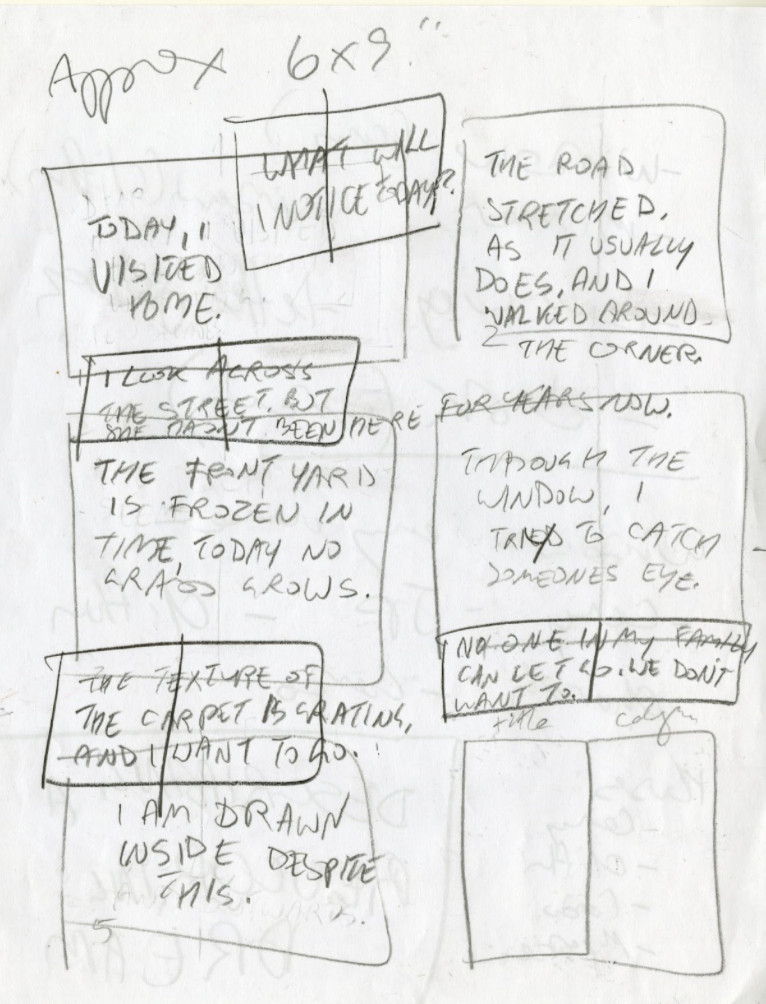 Approx 6x9"
WHAT WILL
I NOTICE TODAY?
TODAY, I
VISITED
HOME.
THE ROAD
STRETCHED,
AS IT USUALLY
DOES, AND I
WALKED AROUND
THE CORNER.
2
I LOOK ACROSS
THE STREET. BUT
SHE HASN'T BEEN HERE FOR YEARS NOW.
THE FRONT YARD
IS FROZEN IN
TIME, TODAY NO
GRASS GROWS.
THROUGH THE
WINDOW, I
TRIED TO CATCH
SOMEONES EYE.
THE TEXTURE OF
THE CARPET IS GRATING,
AND I WANT TO GO.
NO ONE IN MY FAMILY
CAN LET GO. WE DON'T
WANT TO.
I AM DRAWN
INSIDE DESPITE
THIS.
5
title